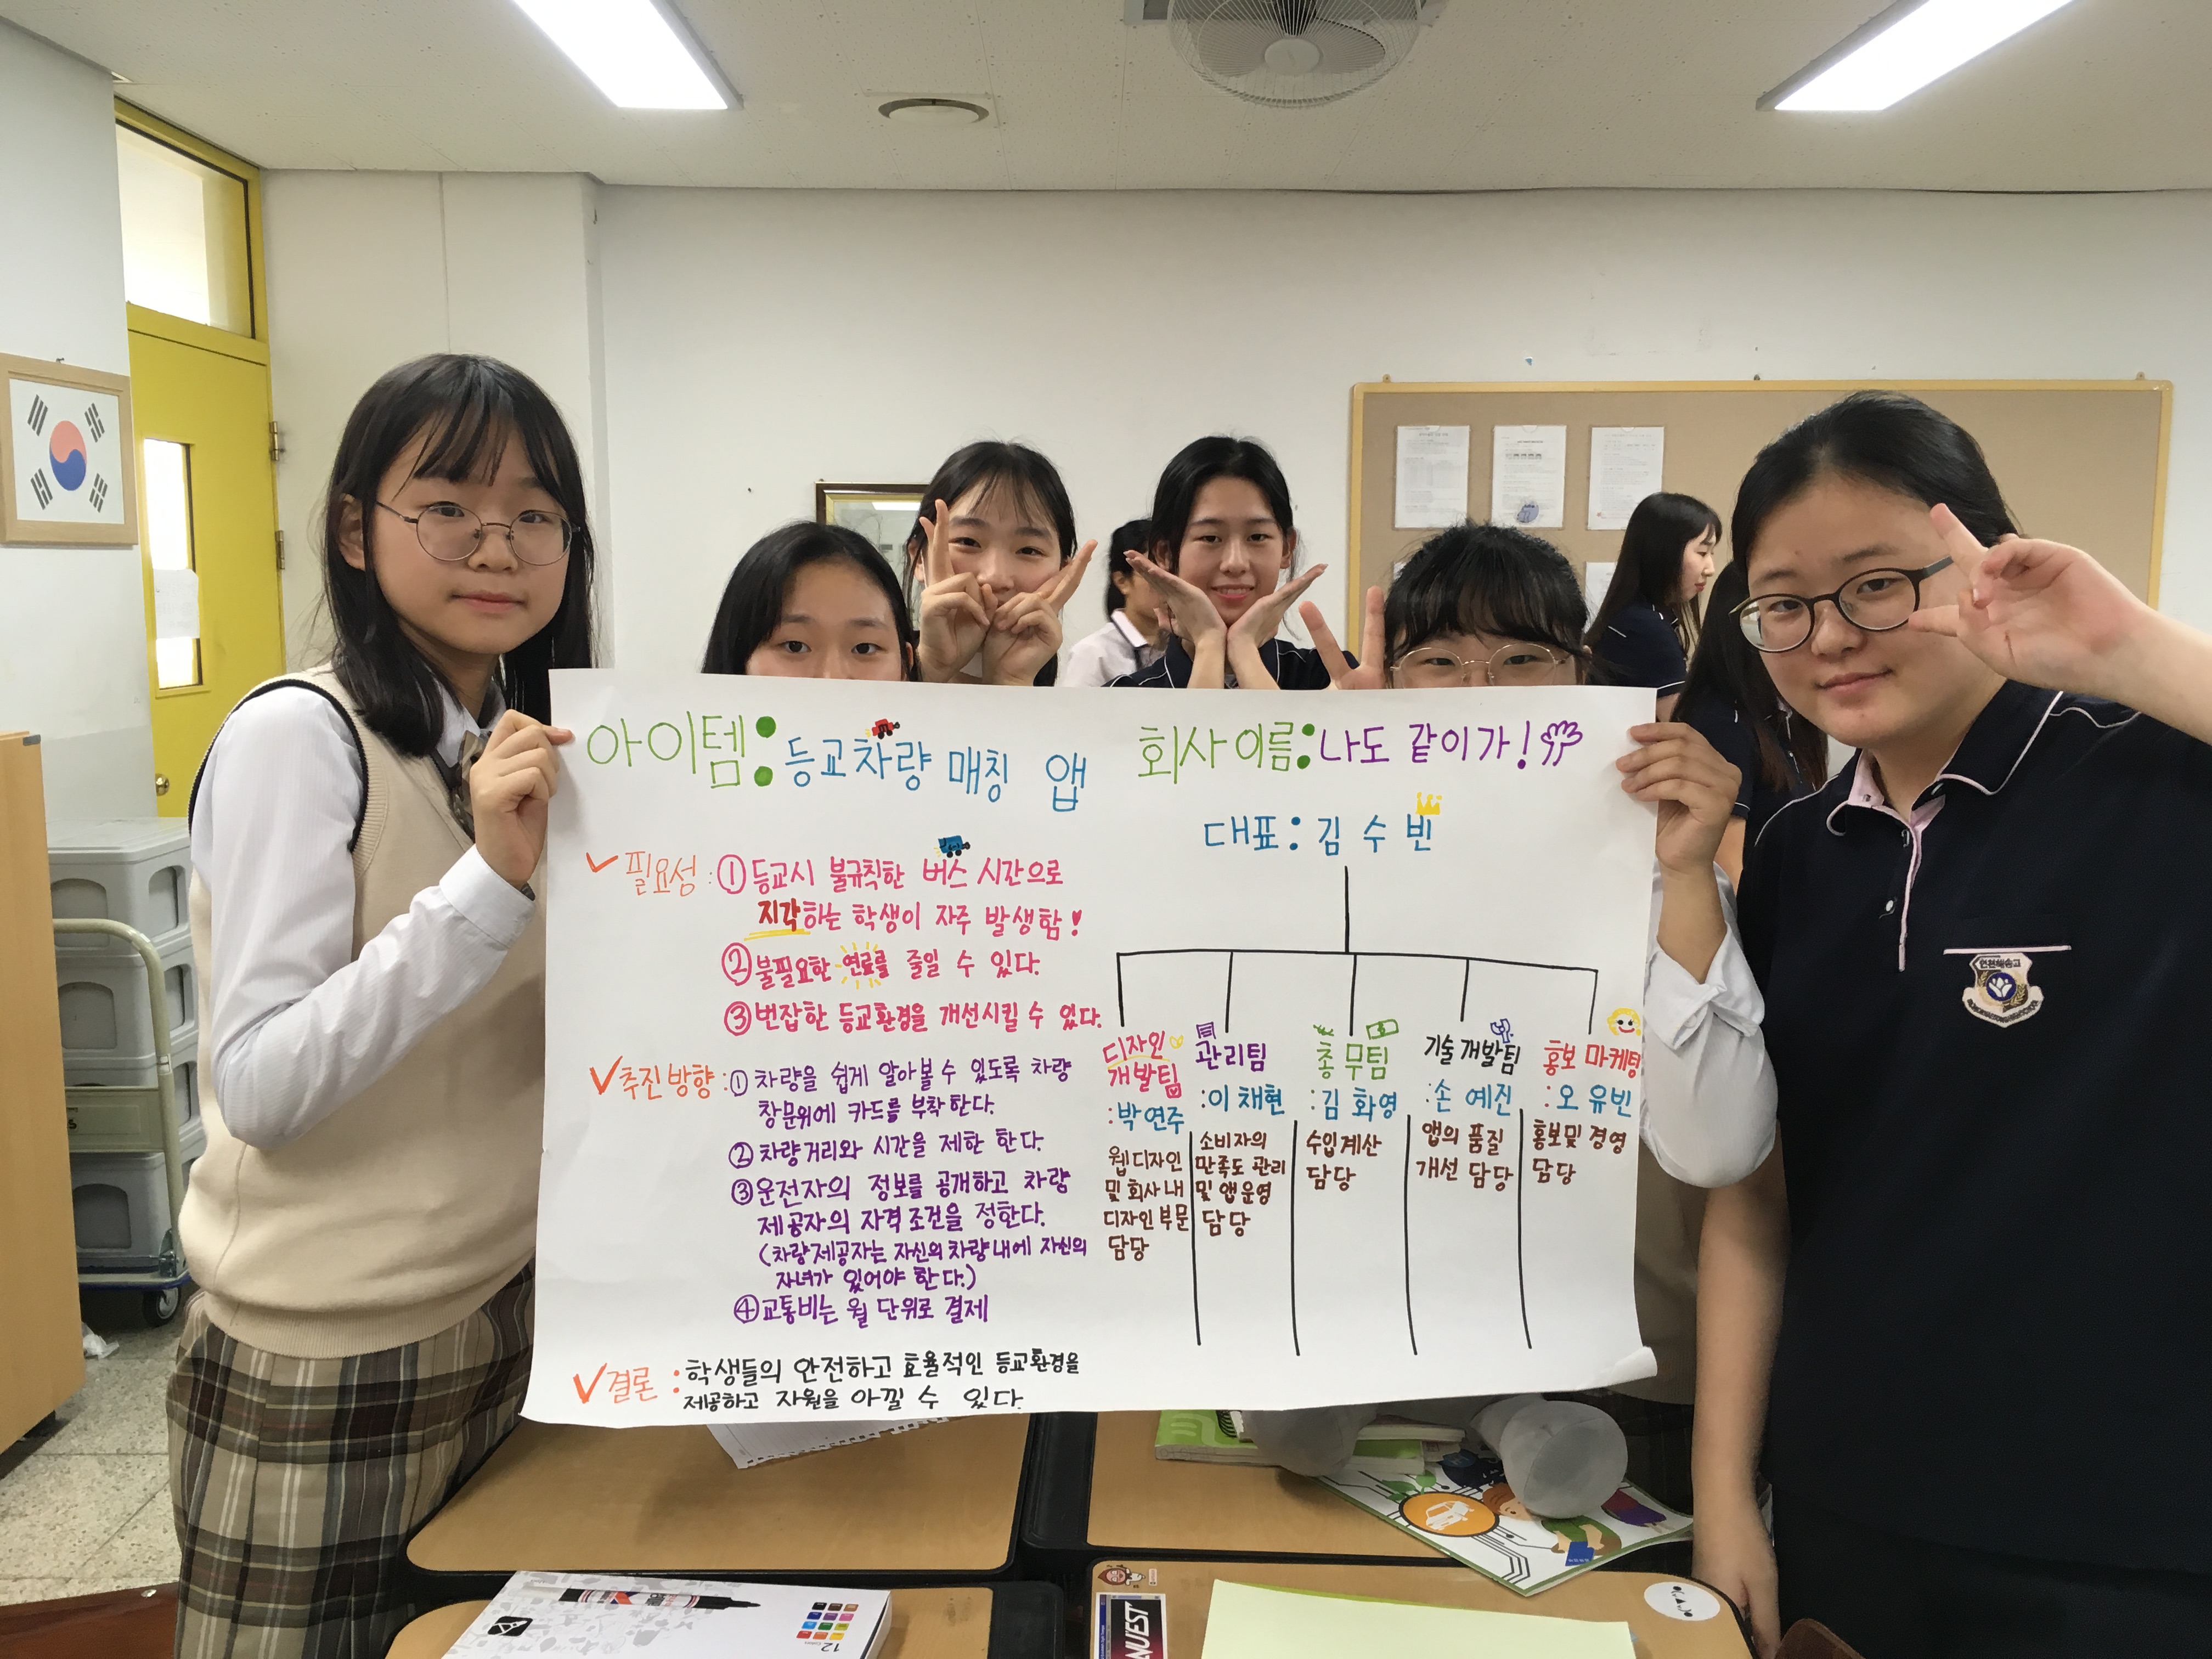 아이템: 등교차량 매칭 앱
✓필요성: ① 등교시 불규칙한 버스 시간으로
지각하는 학생이 자주 발생함!
② 불필요한 연료를 줄일 수 있다.
③ 번잡한 등교환경을 개선시킬 수 있다.
✓추진방향: ① 차량을 쉽게 알아볼 수 있도록 차량
창문위에 카드를 부착한다.
② 차량거리와 시간을 제한 한다.
③ 운전자의 정보를 공개하고 차량
제공자의 자격조건을 정한다.
(차량제공자는 자신의 차량내에 자신의
자녀가 있어야 한다.)
④ 교통비는 월 단위로 결제
✓결론: 학생들의 안전하고 효율적인 등교환경을
제공하고 자원을 아낄 수 있다.
회사이름: 나도 같이가!
대표: 김수빈
디자인
개발팀
:박연주
웹디자인
및 회사내
디자인 부문
담당
관리팀
:이채현
소비자의
만족도 관리
및 앱운영
담당
총무팀
:김화영
수입계산
담당
기술개발팀
:손예진
앱의 품질
개선 담당
홍보 마케팅
:오유빈
홍보및 경영
담당
인천해송고
NUEST
12